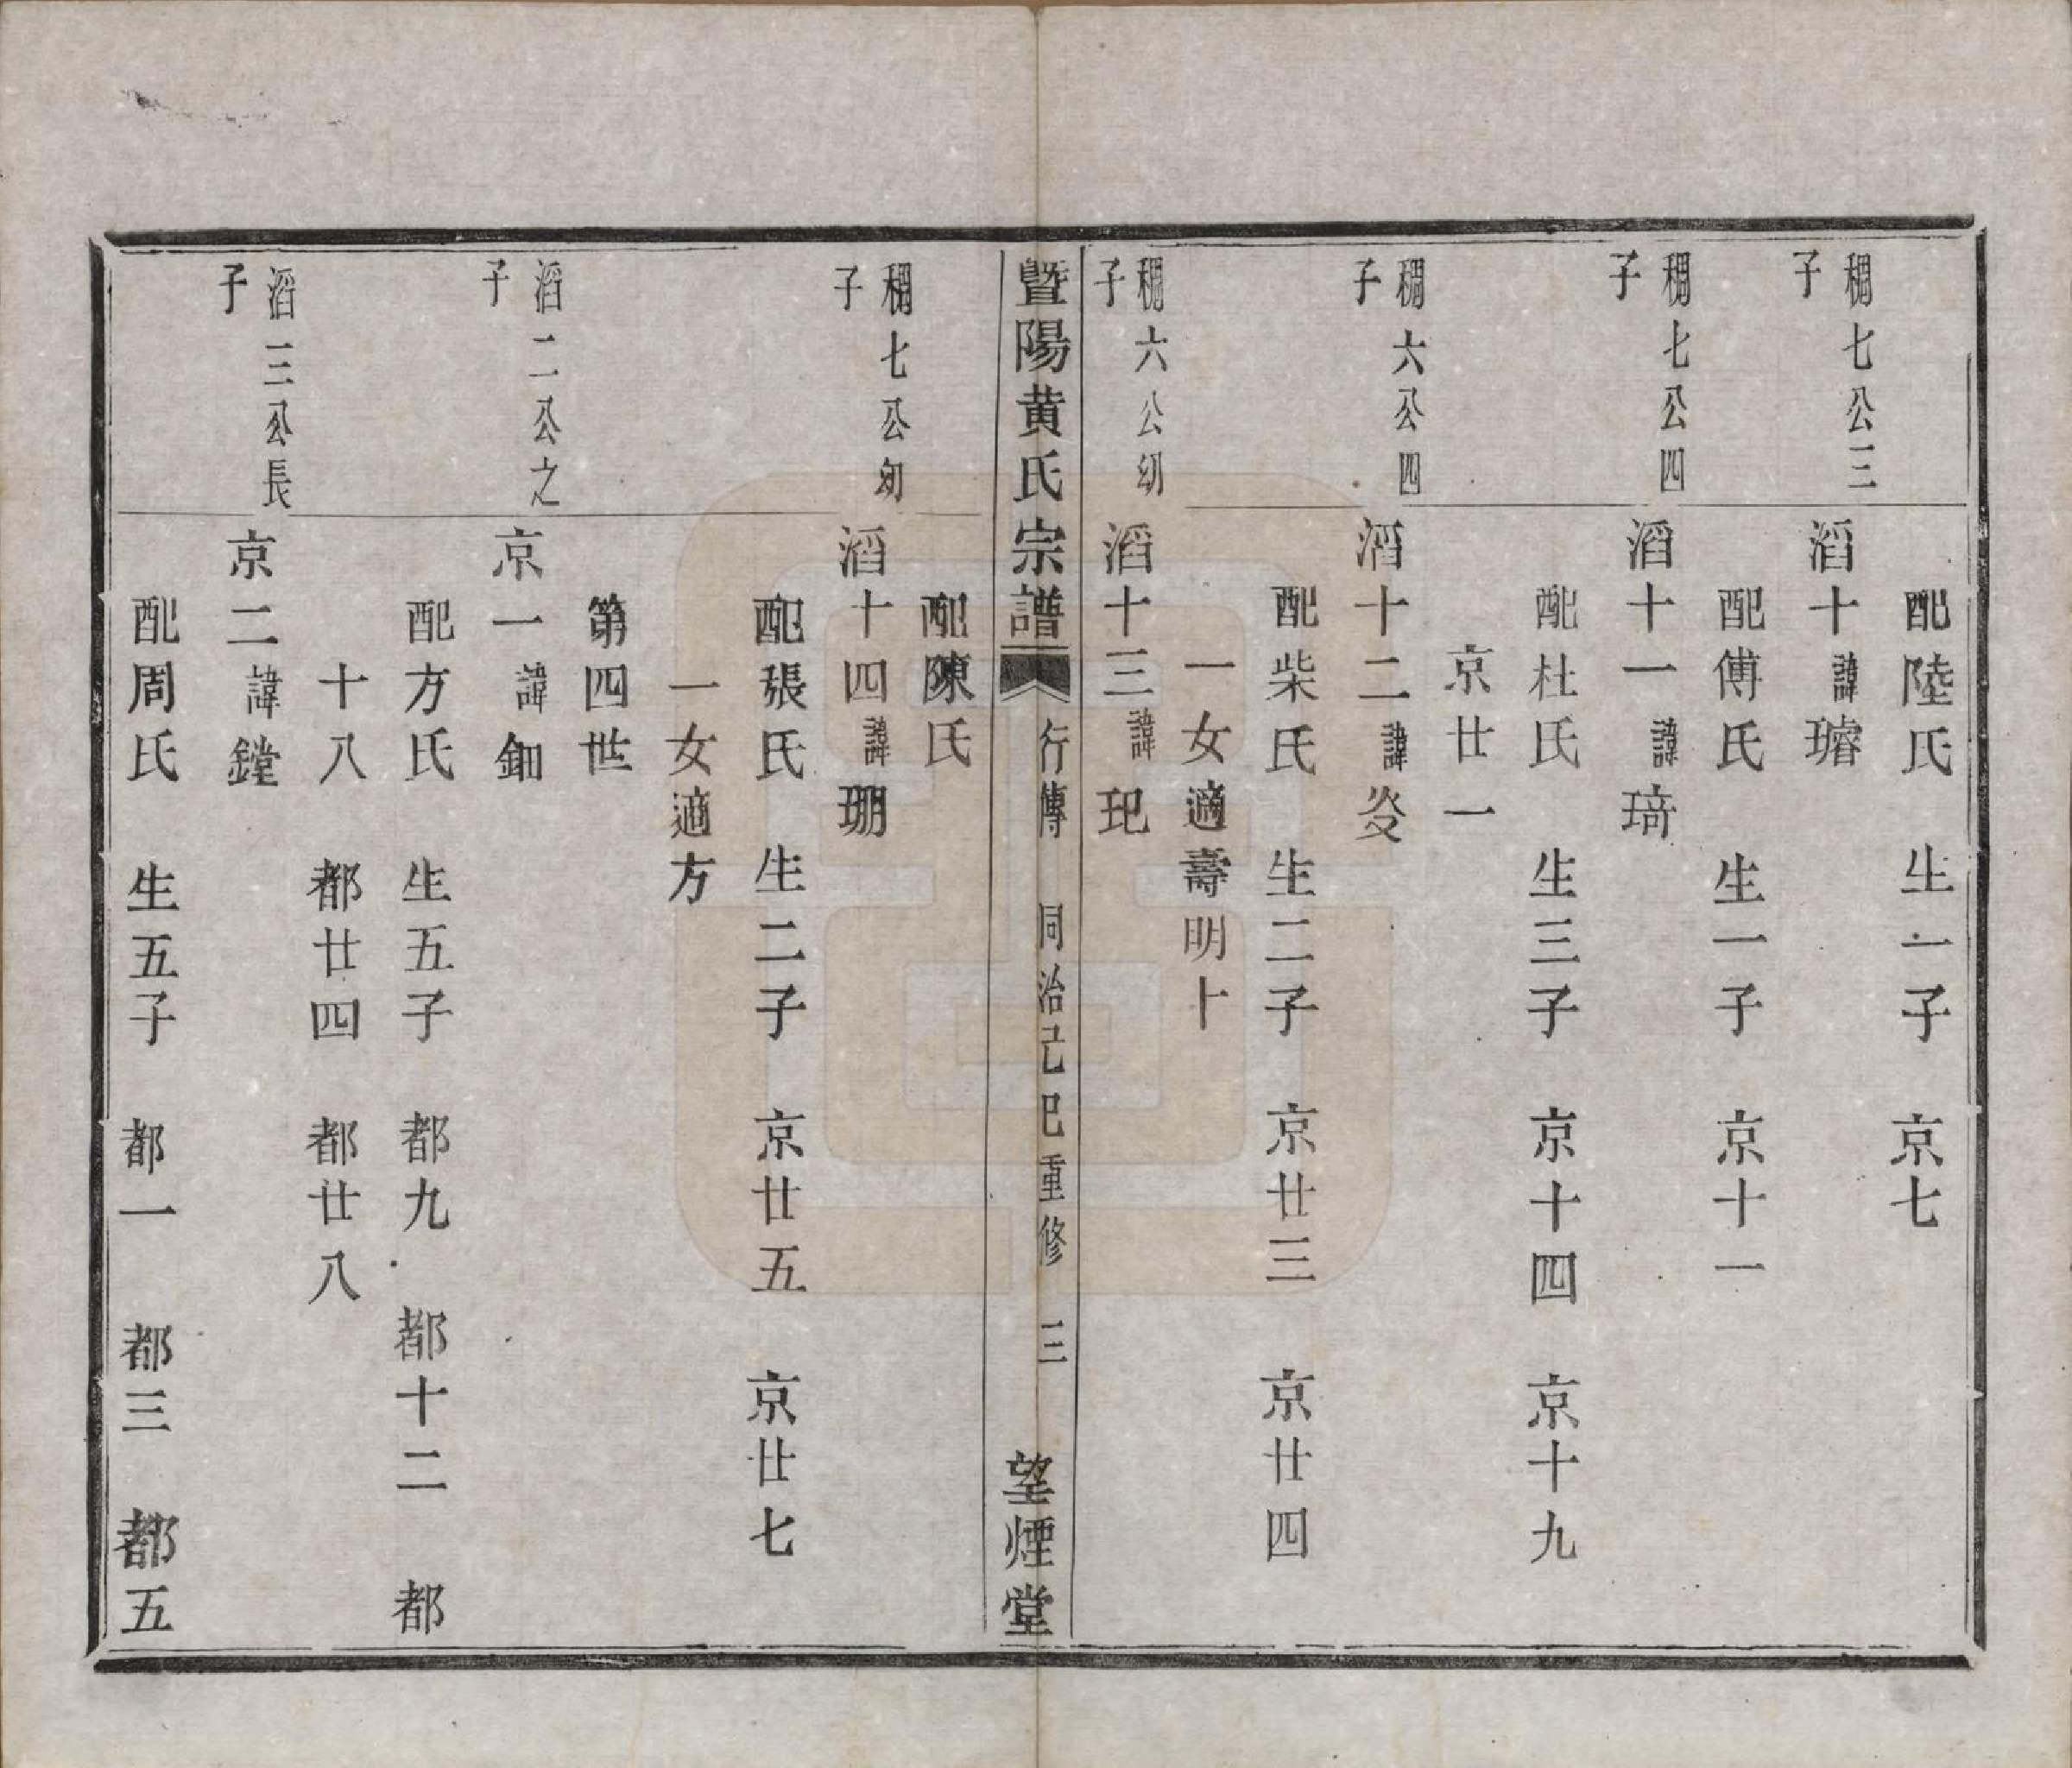 配陸氏　生一子　京七
稠七公三子
滔十諱璿
配傅氏　生一子　京十一
稠七公四子
滔十一諱琦
配杜氏　生三子　京十四　京十九
京廿一
稠六公四子
滔十二諱
配柴氏　生二子　京廿三　京廿四
一女適壽明十
稠六公幼子
滔十三諱玘
暨陽黄氏宗譜　行傳　同治己巳重修　三　望煙堂
配陳氏
稠七公幼子
滔十四諱珊
配張氏　生二子　京廿五　京廿七
一女適方
第四世
滔二公之子
京一諱鈿
配方氏　生五子　都九　都十二　都
十八　都廿四　都廿八
滔三公長子
京二諱鏜
配周氏　生五子　都一　都三　都五